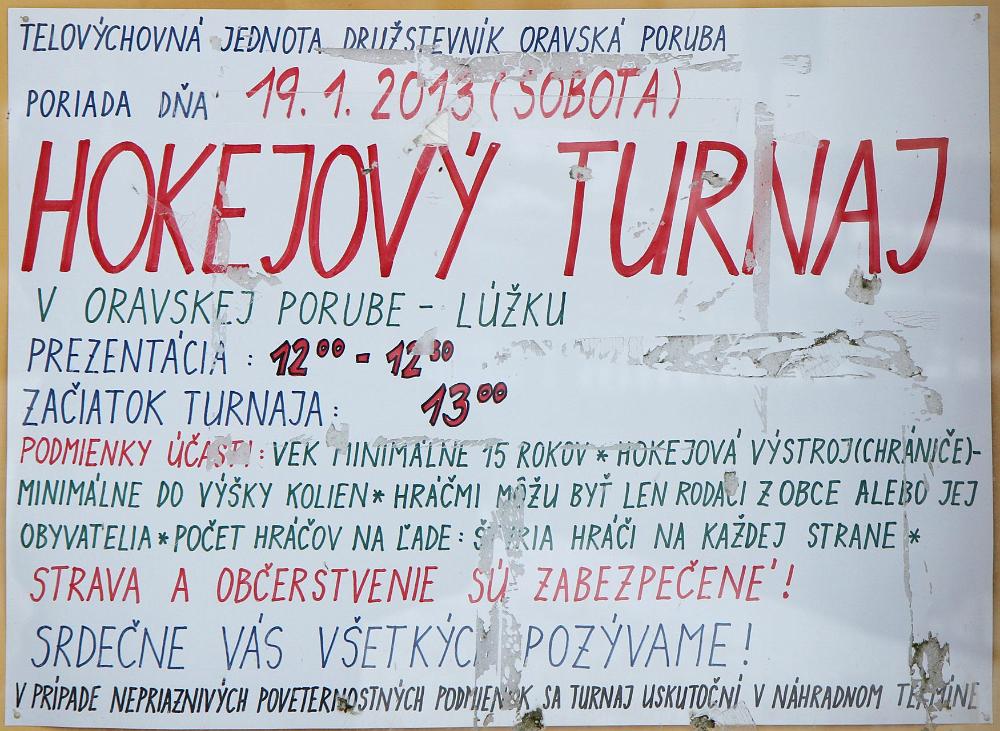 TELOVÝCHOVNÁ JEDNOTA DRUŽSTEVNÍK ORAVSKÁ PORUBA
PORIADA DŇA 19.1.2013 (SOBOTA)
HOKEJOVÝ TURNAJ
V ORAVSKEJ PORUBE - LÚŽKU
PREZENTÁCIA : 12⁰⁰ - 12³⁰
ZAČIATOK TURNAJA: 13⁰⁰
PODMIENKY ÚČASTI: VEK MINIMÁLNE 15 ROKOV * HOKEJOVÁ VÝSTROJ(CHRÁNIČE)-
MINIMÁLNE DO VÝŠKY KOLIEN * HRÁČMI MÔŽU BYŤ LEN RODÁCI Z OBCE ALEBO JEJ
OBYVATELIA * POČET HRÁČOV NA ĽADE : ŠTYRIA HRÁČI NA KAŽDEJ STRANE *
STRAVA A OBČERSTVENIE SÚ ZABEZPEČENÉ !
SRDEČNE VÁS VŠETKÝCH POZÝVAME !
V PRÍPADE NEPRIAZNIVÝCH POVETERNOSTNÝCH PODMIENOK SA TURNAJ USKUTOČNÍ V NÁHRADNOM TERMÍNE